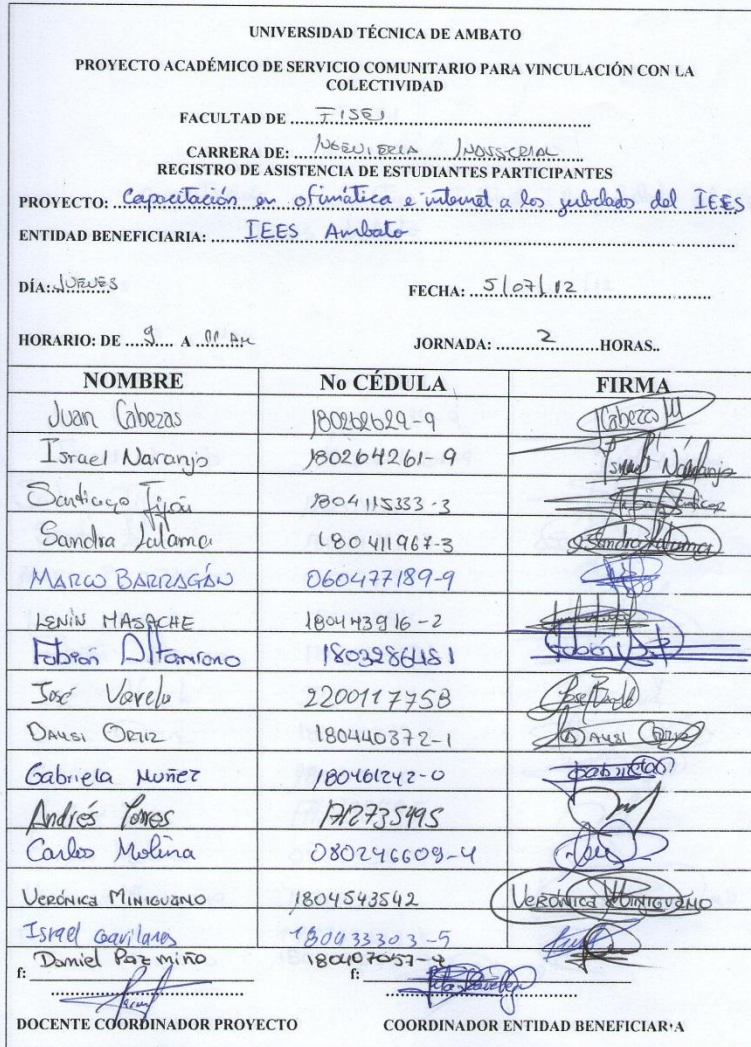 UNIVERSIDAD TÉCNICA DE AMBATO
PROYECTO ACADÉMICO DE SERVICIO COMUNITARIO PARA VINCULACIÓN CON LA
COLECTIVIDAD
FACULTAD DE FISEI
CARRERA DE: INGENIERIA INDUSTRIAL
REGISTRO DE ASISTENCIA DE ESTUDIANTES PARTICIPANTES
PROYECTO: Capacitación en ofimática e internet a los jubilados del IEES
ENTIDAD BENEFICIARIA: IEES Ambato
DÍA: JUEVES FECHA: 5/07/12
HORARIO: DE 9 A 11 AM JORNADA: 2 HORAS..
NOMBRE No CÉDULA FIRMA
Juan Cabezas 180262629-9 Cabezas
Israel Naranjo 180264261-9 Israel Naranjo
Santiago Tijón 1804115333-3
Sandra Jalama 180411967-3 Sandra Jalama
MARCO BARRAGÁN 060477189-9
LENIN MASACHE 180443916-2
Fabián Altamirano 1803286481 Fabián
José Varela 2200117758 José
DAYSI ORTIZ 180440372-1 DAYSI ORTIZ
Gabriela Nuñez 180461242-0 Gabriela
Andrés Torres 1712735495
Carlos Molina 080246609-4
VERÓNICA MINIGUANO 1804543542 VERÓNICA MINIGUANO
Israel Gavilanes 180433303-5
Daniel Pazmiño 180407057-4
f: f:
DOCENTE COORDINADOR PROYECTO COORDINADOR ENTIDAD BENEFICIARIA